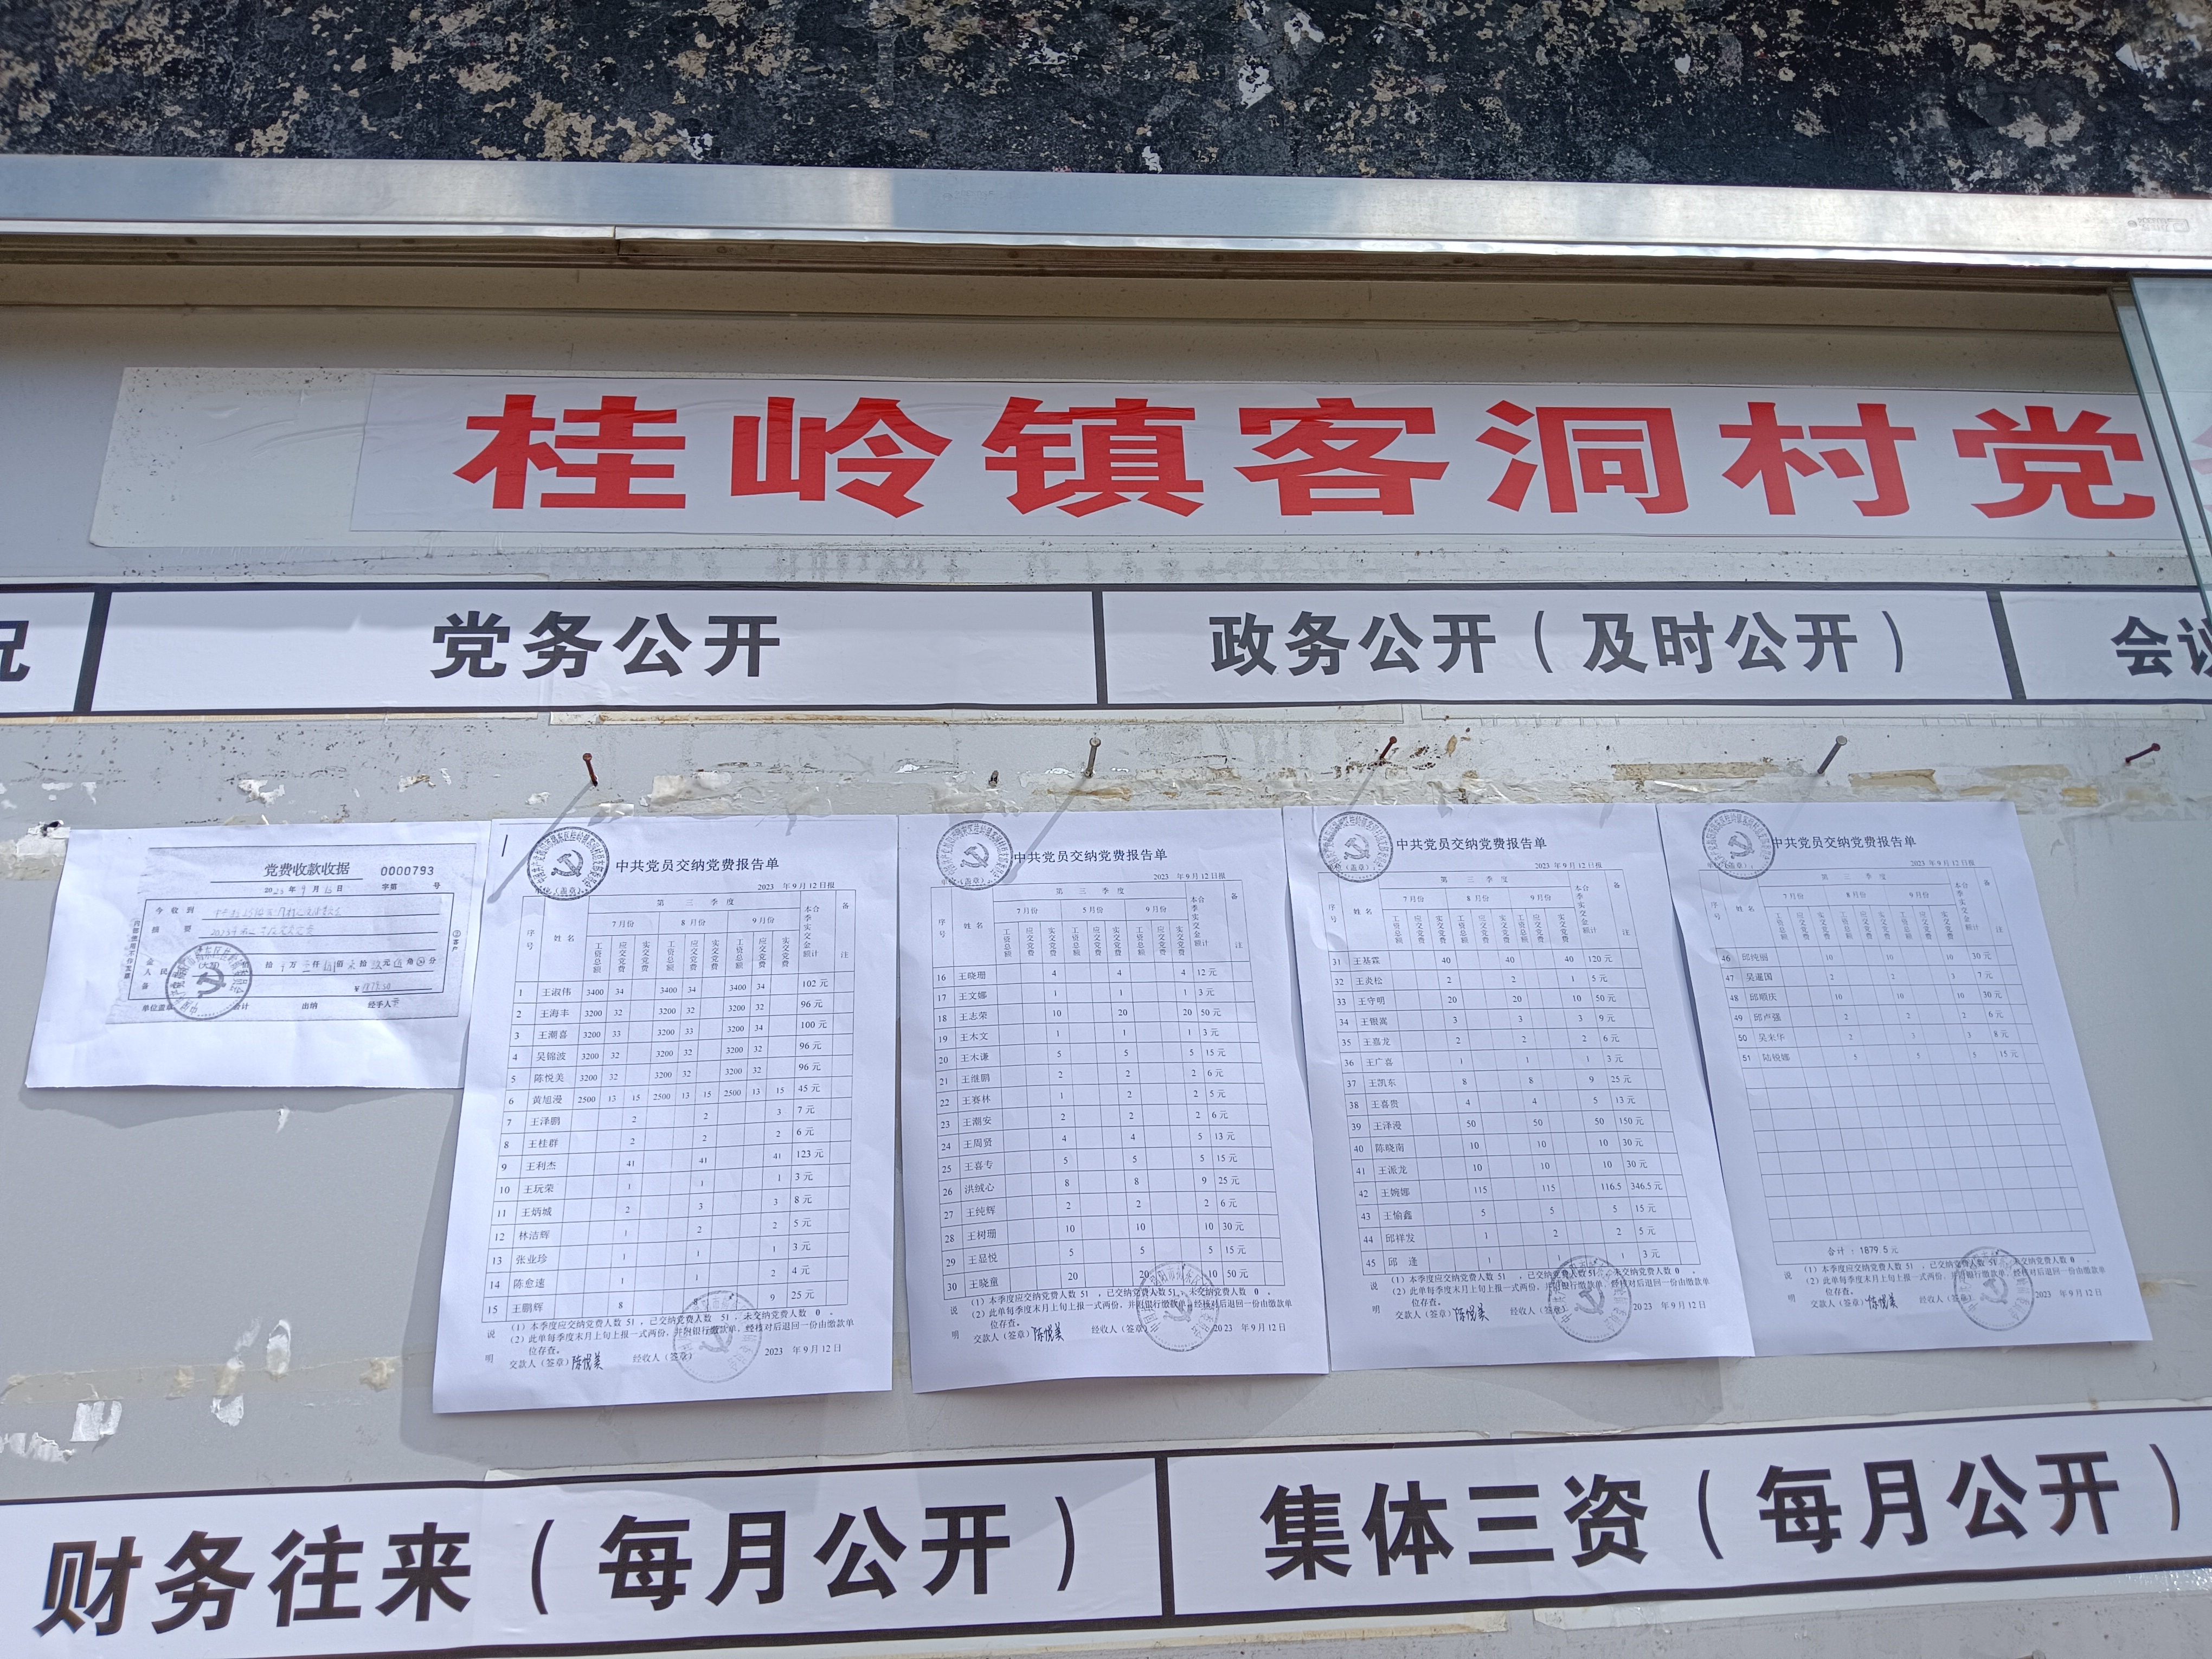 桂岭镇客洞村党
况
党务公开
政务公开（及时公开）
会议
党费收款收据 0000793
2023年9月15日 字第 号
今收到
摘要
单位盖章 会计 出纳 经手人
中共党员交纳党费报告单
单位（盖章）
2023 年9月12日报
序号 姓名 第三季度 本季实交金额合计 备注
7月份 8月份 9月份
工资总额 应交党费 实交党费 工资总额 应交党费 实交党费 工资总额 应交党费 实交党费
1 王淑伟 3400 34 3400 34 3400 34 102元
2 王海丰 3200 32 3200 32 3200 32 96元
3 王潮喜 3200 33 3200 33 3200 34 100元
4 吴锦波 3200 32 3200 32 3200 32 96元
5 陈悦美 3200 32 3200 32 3200 32 96元
6 黄旭漫 2500 13 15 2500 13 15 2500 13 15 45元
7 王泽鹏 2 2 3 7元
8 王桂群 2 2 2 6元
9 王利杰 41 41 41 123元
10 王玩荣 1 1 1 3元
11 王炳城 2 3 3 8元
12 林洁辉 1 2 2 5元
13 张业珍 1 1 1 3元
14 陈愈速 1 1 2 4元
15 王鹏辉 8 8 9 25元
说明 （1）本季度应交纳党费人数 51 ，已交纳党费人数 51 ，未交纳党费人数 0 。
（2）此单每季度末月上旬上报一式两份，并附银行缴款单，经核对后退回一份由缴款单
位存查。
交款人（签章）陈悦美 经收人（签章） 2023 年9月12日
中共党员交纳党费报告单
单位（盖章）
2023 年9月12日报
序号 姓名 第三季度 本季实交金额合计 备注
7月份 5月份 9月份
工资总额 应交党费 实交党费 工资总额 应交党费 实交党费 工资总额 应交党费 实交党费
16 王晓珊 4 4 4 12元
17 王文娜 1 1 1 3元
18 王志荣 10 20 20 50元
19 王木文 1 1 1 3元
20 王木谦 5 5 5 15元
21 王继鹏 2 2 2 6元
22 王赛林 1 2 2 5元
23 王潮安 2 2 2 6元
24 王周贤 4 4 5 13元
25 王喜专 5 5 5 15元
26 洪绒心 8 8 9 25元
27 王纯辉 2 2 2 6元
28 王树珊 10 10 10 30元
29 王显悦 5 5 5 15元
30 王晓童 20 20 10 50元
说明 （1）本季度应交纳党费人数 51 ，已交纳党费人数 51 ，未交纳党费人数 0 。
（2）此单每季度末月上旬上报一式两份，并附银行缴款单，经核对后退回一份由缴款单
位存查。
交款人（签章）陈悦美 经收人（签章） 2023 年9月12日
中共党员交纳党费报告单
（盖章）
2023 年9月12日报
序号 姓名 第三季度 本季实交金额合计 备注
7月份 8月份 9月份
工资总额 应交党费 实交党费 工资总额 应交党费 实交党费 工资总额 应交党费 实交党费
31 王基霖 40 40 40 120元
32 王炎松 2 2 1 5元
33 王守明 20 20 10 50元
34 王银嵩 3 3 3 9元
35 王嘉龙 2 2 2 6元
36 王广喜 1 1 1 3元
37 王凯东 8 8 9 25元
38 王喜贵 4 4 5 13元
39 王泽漫 50 50 50 150元
40 陈晓南 10 10 10 30元
41 王派龙 10 10 10 30元
42 王婉娜 115 115 116.5 346.5元
43 王愉鑫 5 5 5 15元
44 邱祥发 1 2 2 5元
45 邱逢 1 1 1 3元
说明 （1）本季度应交纳党费人数 51 ，已交纳党费人数 51 ，未交纳党费人数 0 。
（2）此单每季度末月上旬上报一式两份，并附银行缴款单，经核对后退回一份由缴款单
位存查。
交款人（签章）陈悦美 经收人（签章） 2023 年9月12日
中共党员交纳党费报告单
（盖章）
2023 年9月12日报
序号 姓名 第三季度 本季实交金额合计 备注
7月份 8月份 9月份
工资总额 应交党费 实交党费 工资总额 应交党费 实交党费 工资总额 应交党费 实交党费
46 邱纯丽 10 10 10 30元
47 吴暹国 2 2 3 7元
48 邱顺庆 10 10 10 30元
49 邱卢强 2 2 2 6元
50 吴未华 2 3 3 8元
51 陆锐娜 5 5 5 15元
合计：1879.5元
说明 （1）本季度应交纳党费人数 51 ，已交纳党费人数 51 ，未交纳党费人数 0 。
（2）此单每季度末月上旬上报一式两份，并附银行缴款单，经核对后退回一份由缴款单
位存查。
交款人（签章）陈悦美 经收人（签章） 2023 年9月12日
财务往来（每月公开）
集体三资（每月公开）